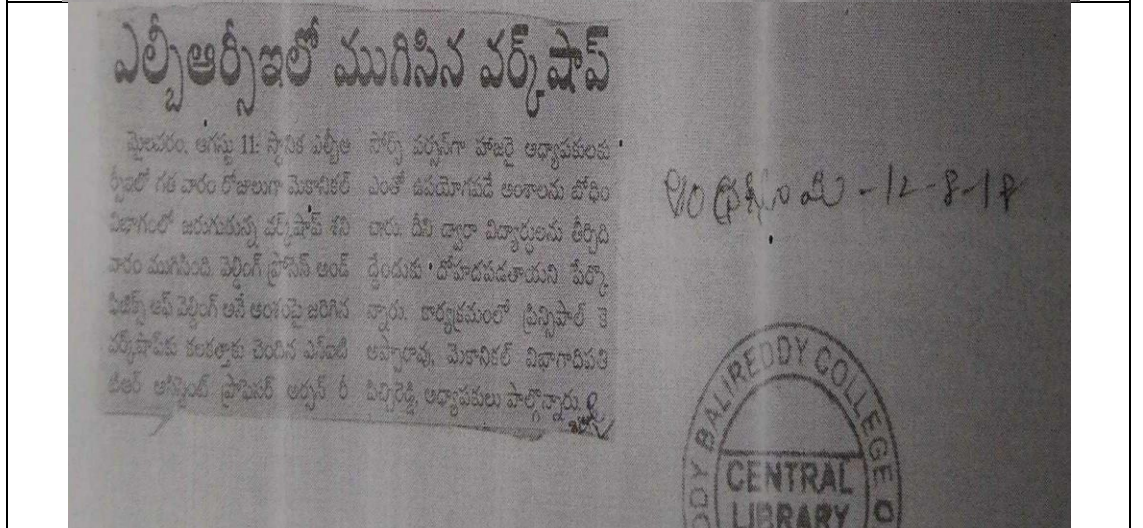 ఎల్బీఆర్సీఇలో ముగిసిన వర్క్‌షాప్
మైలవరం, ఆగస్టు 11: స్థానిక ఎల్బీఆ
ర్సీఇలో గత వారం రోజులుగా మెకానికల్
విభాగంలో జరుగుతున్న వర్క్‌షాప్ శని
వారం ముగిసింది. వెల్డింగ్ ప్రోసెస్ అండ్
ఫిజిక్స్ ఆఫ్ వెల్డింగ్ అనే అంశంపై జరిగిన
వర్క్‌షాప్‌కు కలకత్తాకు చెందిన ఎన్ఐటి
టీఆర్ అసిస్టెంట్ ప్రొఫెసర్ అర్పన్ రీ
సోర్స్ పర్సన్‌గా హాజరై అధ్యాపకులకు
ఎంతో ఉపయోగపడే అంశాలను బోధిం
చారు. దీని ద్వారా విద్యార్థులను తీర్చిది
ద్దేందుకు దోహదపడతాయని పేర్కొ
న్నారు. కార్యక్రమంలో ప్రిన్సిపాల్ కె
అప్పారావు, మెకానికల్ విభాగాధిపతి
పిచ్చిరెడ్డి, అధ్యాపకులు పాల్గొన్నారు.
ఆంధ్రభూమి -12-8-18
DDY BALIREDDY COLLEGE O
CENTRAL
LIBRARY